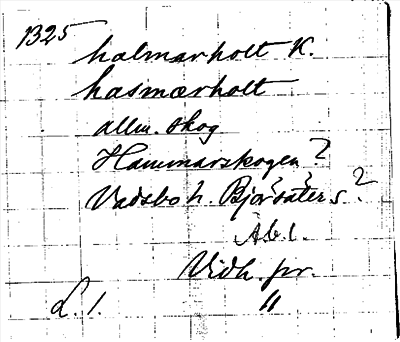 1325
halmarholt K.
hasmærholt
allm. skog
Hammarskogen?
Vadsbo h. Björsäters?
Äb. l.
Vidh. pr.
L. 1. "